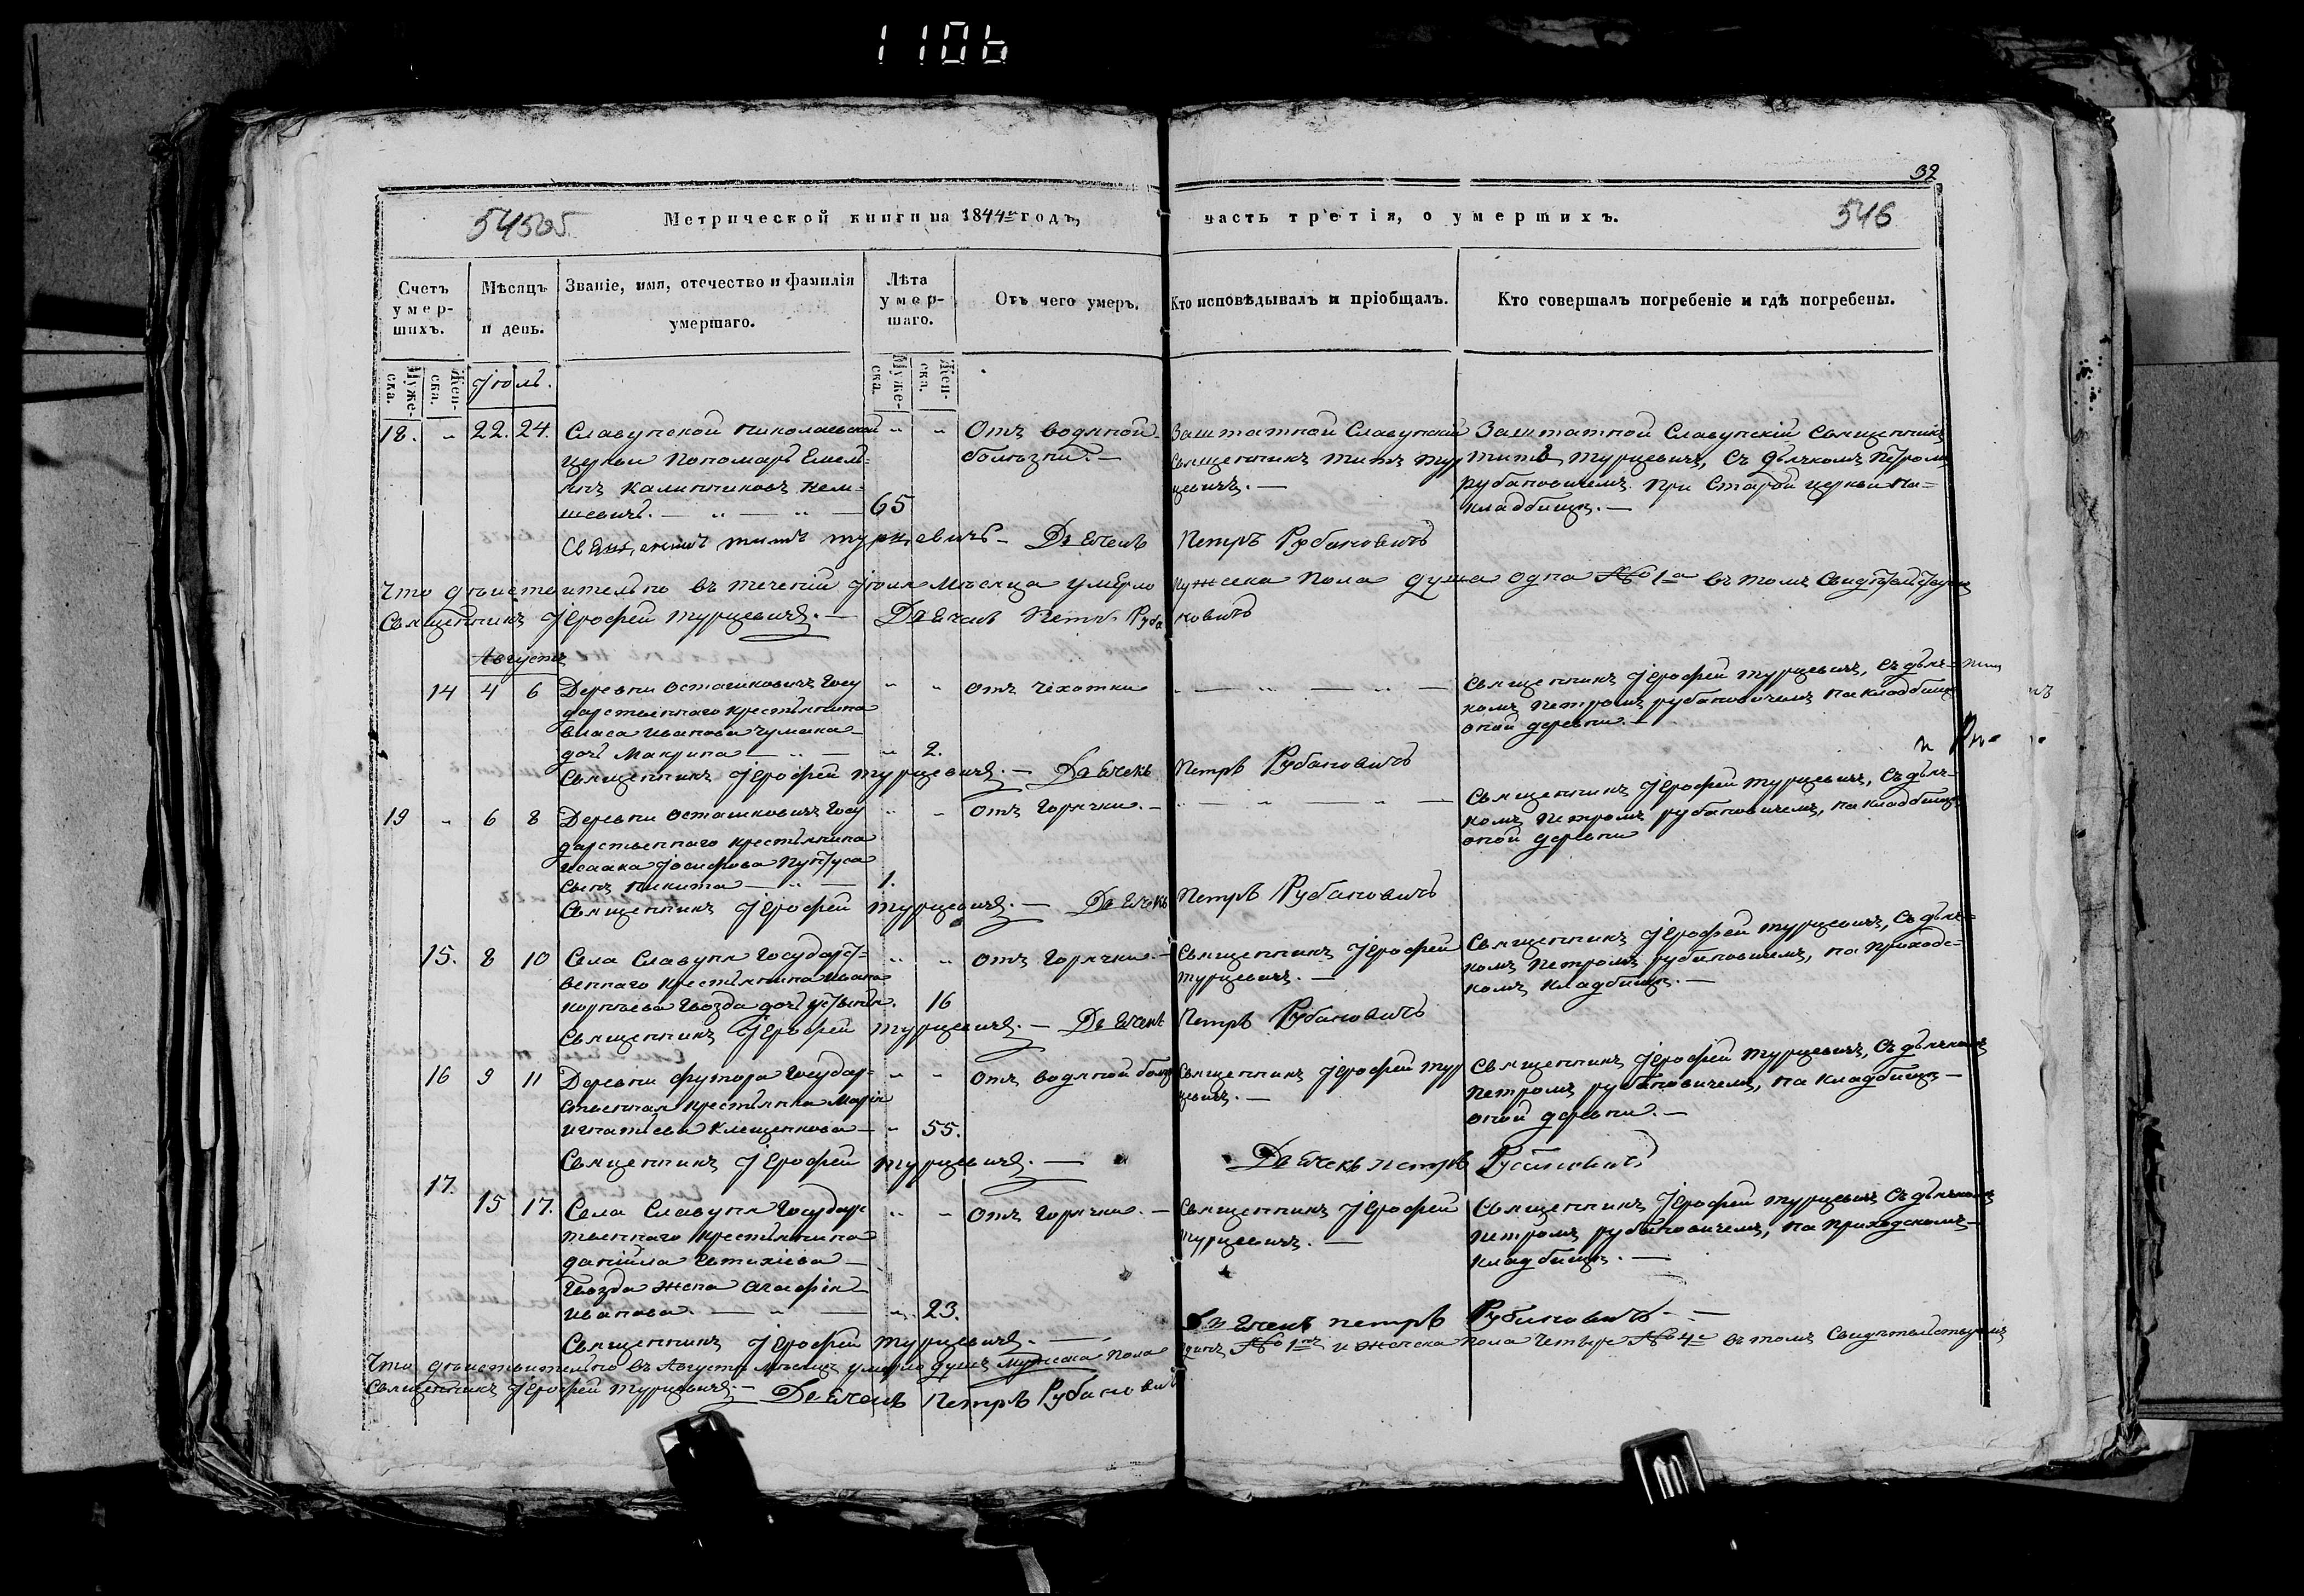 1106
32
54505
Метрической книги на 1844й годъ,
часть третія, о умершихъ.
546
Счетъ умер-шихъ.
Мѣсяцъ и день.
Званіе, имя, отечество и фамилія умершаго.
Лѣта умер-шаго.
Отъ чего умеръ.
Кто исповѣдывалъ и пріобщалъ.
Кто совершалъ погребеніе и гдѣ погребены.
Муже-ска.
Жен-ска.
Іюль.
Муже-ска.
Жен-ска.
18. 22. 24.
Славунской Николаевской
церкви Пономарь Емель=
янъ Калинниковъ
65
Отъ водяной
болѣзни.
Заштатной Славунскій
Священникъ Титъ Тур
цевичъ.
Заштатной Славунскій Священникъ
Титъ Турцевичъ, съ дьячкомъ Петромъ
Рубановичемъ при Старой церкви на
кладбищѣ.
Священникъ Титъ Турцевичъ Дьячекъ Петръ Рубановичъ
Что дѣйствительно въ теченіи Іюля Мѣсяца умерло Мужеска пола душа одна № 1а въ томъ Свидѣтельствуемъ
Священникъ Іерофей Турцевичъ. Дьячекъ Петръ Рубановичъ
Августъ
14 4 6
Деревни Осташковичъ Госу
дарственнаго крестьянина
Власа Иванова Чумака
дочь Макрина
2.
отъ чахотки
Священникъ Іерофей Турцевичъ, съ дьяч-
комъ Петромъ Рубановичемъ на кладбищѣ
оной деревни.
Священникъ Іерофей Турцевичъ. Дьячекъ Петръ Рубановичъ
19 6 8
Деревни Осташковичъ Госу
дарственнаго крестьянина
Исаака Іосифова Пунтуса
сынъ Никита
1.
отъ горячки.
Священникъ Іерофей Турцевичъ, съ дьяч-
комъ Петромъ Рубановичемъ, на кладбищѣ
оной деревни
Священникъ Іерофей Турцевичъ. Дьячекъ Петръ Рубановичъ
15. 8 10
Села Славуня Государст=
веннаго крестьянина Ивана
Корнѣева Гвозда дочь
16
отъ горячки
Священникъ Іерофей
Турцевичъ.
Священникъ Іерофей Турцевичъ, съ дьяч=
комъ Петромъ Рубановичемъ, на приходс=
комъ кладбищѣ.
Священникъ Іерофей Турцевичъ. Дьячекъ Петръ Рубановичъ
16 9 11
Деревни Футора Государ=
ственная крестьянка Марія
Игнатіева Клещенкова
55.
отъ водяной
Священникъ Іерофей Тур
цевичъ.
Священникъ Іерофей Турцевичъ, съ дьячкомъ
Петромъ Рубановичемъ, на кладбищѣ
оной деревни.
Священникъ Іерофей Турцевичъ. Дьячекъ Петръ Рубановичъ
17. 15 17.
Села Славуня Государ
твеннаго крестьянина
Даніила
Гвозда жена Агафія
Иванова.
23.
отъ горячки.
Священникъ Іерофей
Турцевичъ.
Священникъ Іерофей Турцевичъ съ дьячкомъ
Петромъ Рубановичемъ, на приходскомъ
кладбищѣ.
Священникъ Іерофей Турцевичъ. Дьячекъ Петръ Рубановичъ
Что дѣйствительно въ Августѣ мѣсяцѣ умерло душъ Мужеска пола № 1нъ и женска пола четыре № 4е въ томъ Свидѣтельствуемъ
Священникъ Іерофей Турцевичъ. Дьячекъ Петръ Рубановичъ